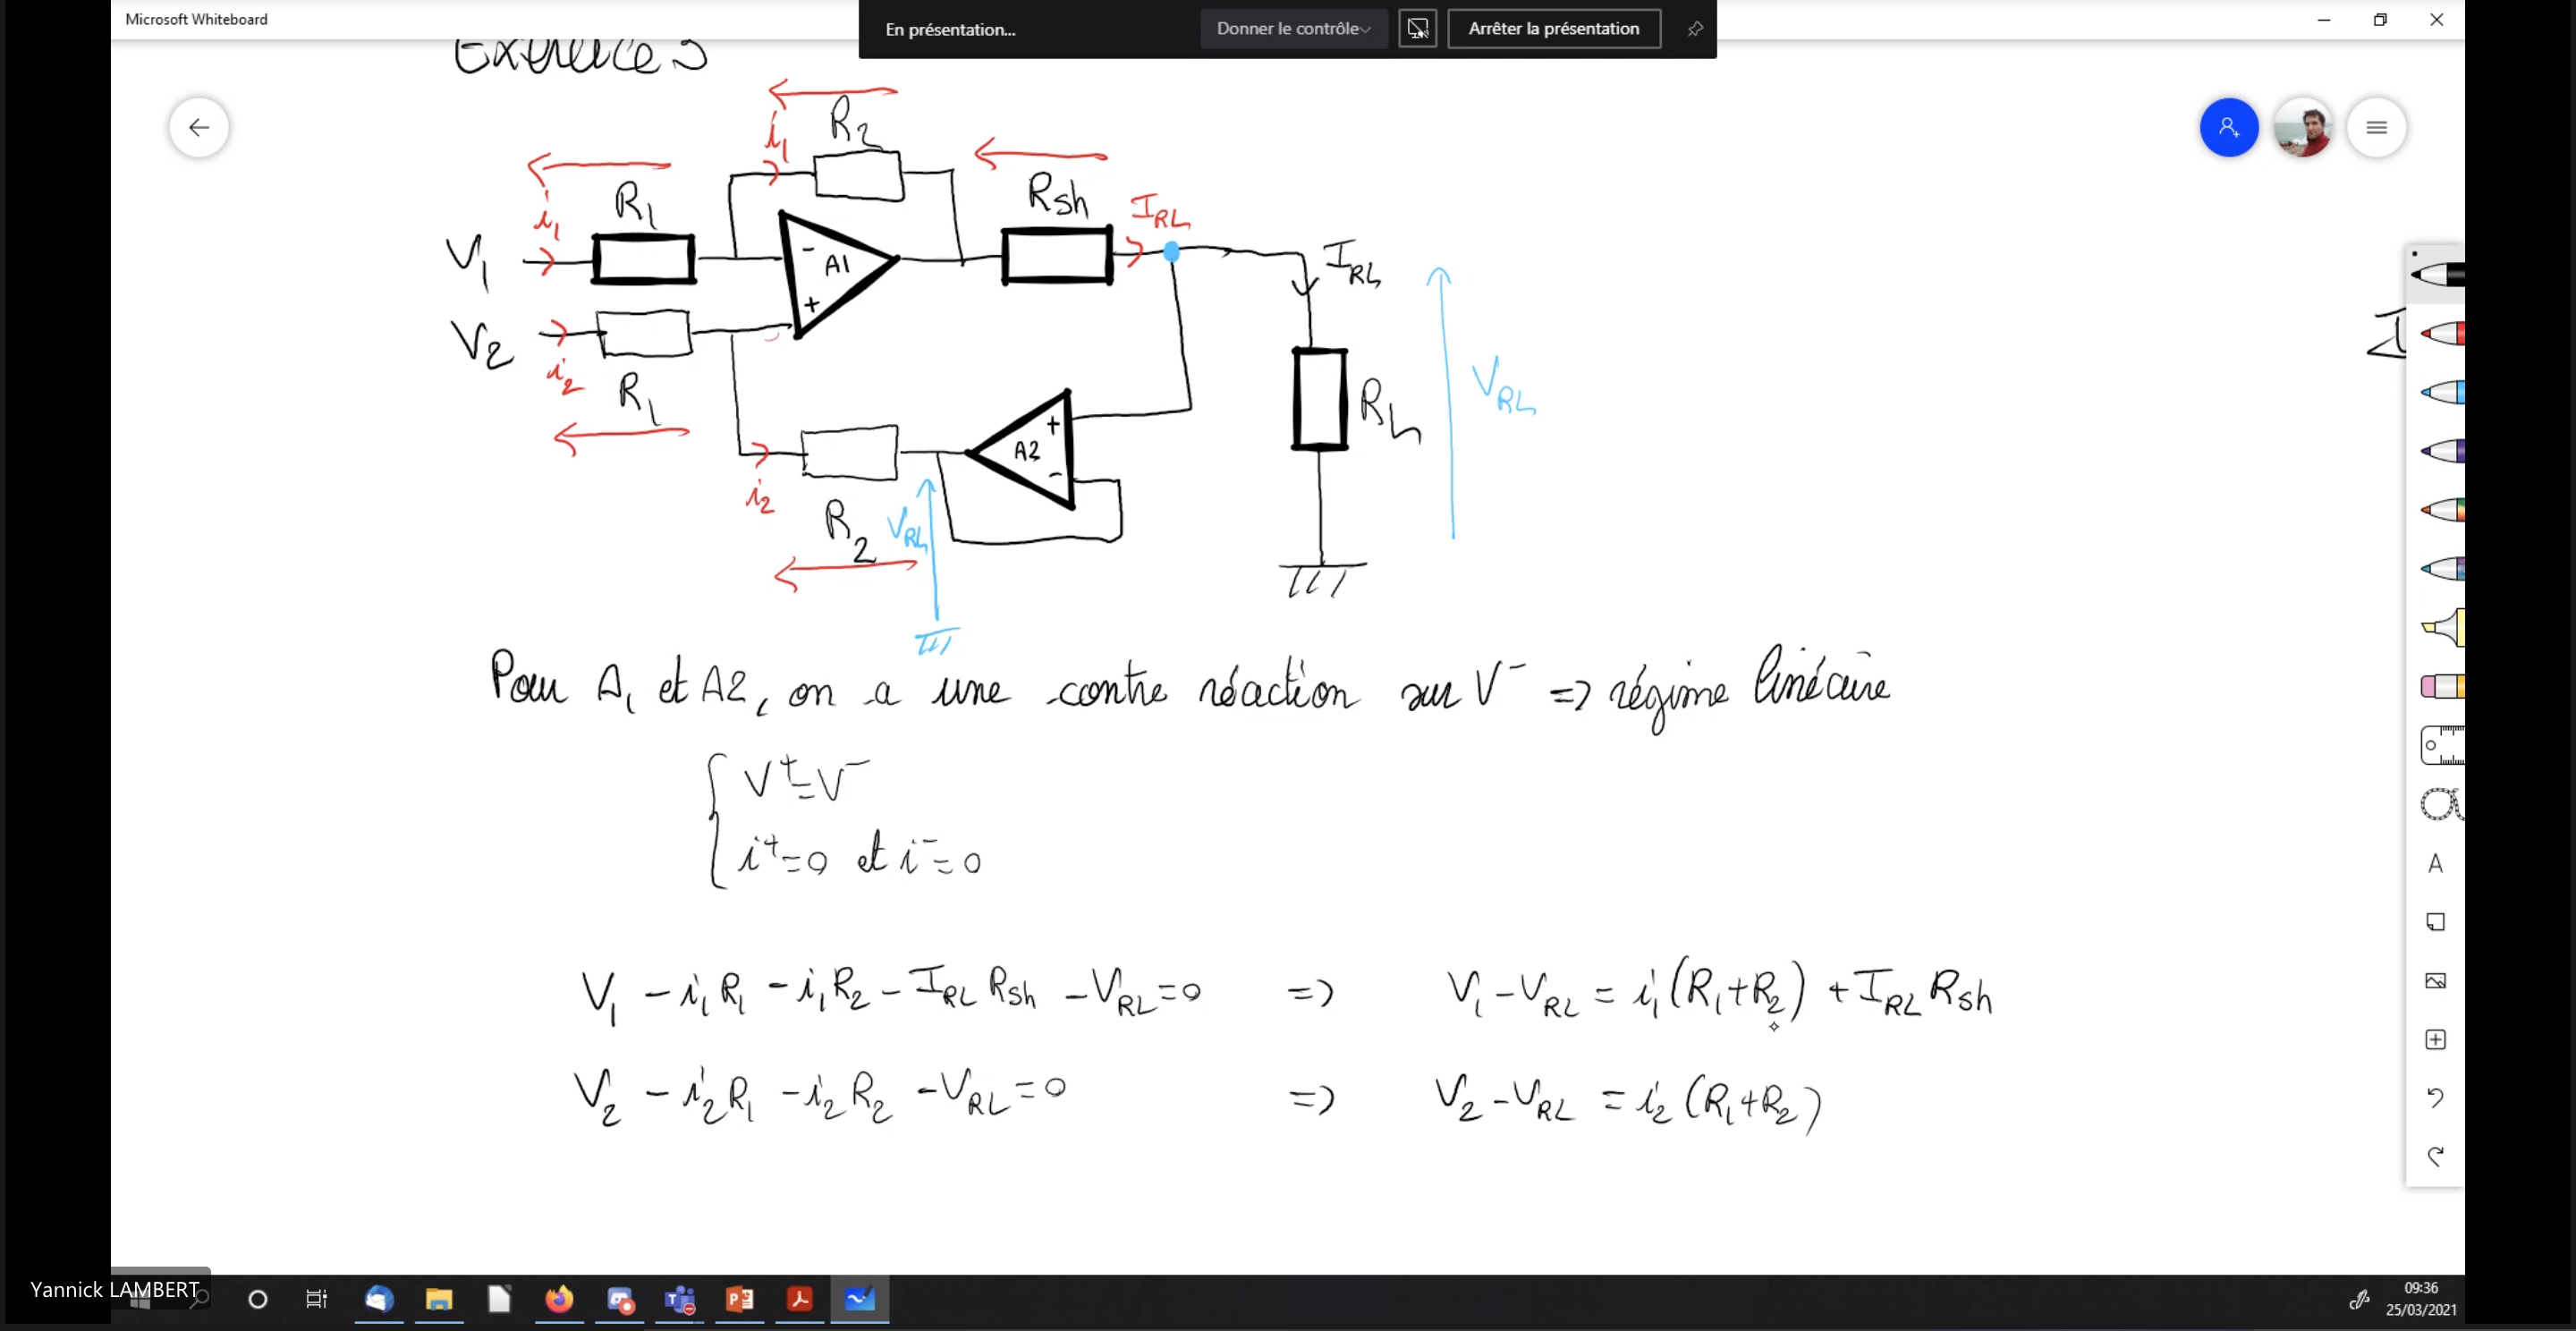 Microsoft Whiteboard
En présentation...
Donner le contrôle
Arrêter la présentation
Exercice 3
R2
i1
R1
i1
V1
- A1 +
Rsh
IRL
IRL
V2
i2
R1
RL
VRL
i2
R2
+ A2 -
VRL
Pour A1 et A2, on a une contre réaction sur V⁻ => régime linéaire
V⁺=V⁻
i⁺=0 et i⁻=0
V1 - i1R1 - i1R2 - IRL Rsh - VRL=0 => V1-VRL = i1(R1+R2) + IRL Rsh
V2 - i2R1 - i2R2 - VRL=0 => V2-VRL = i2(R1+R2)
A
Yannick LAMBERT
09:36
25/03/2021